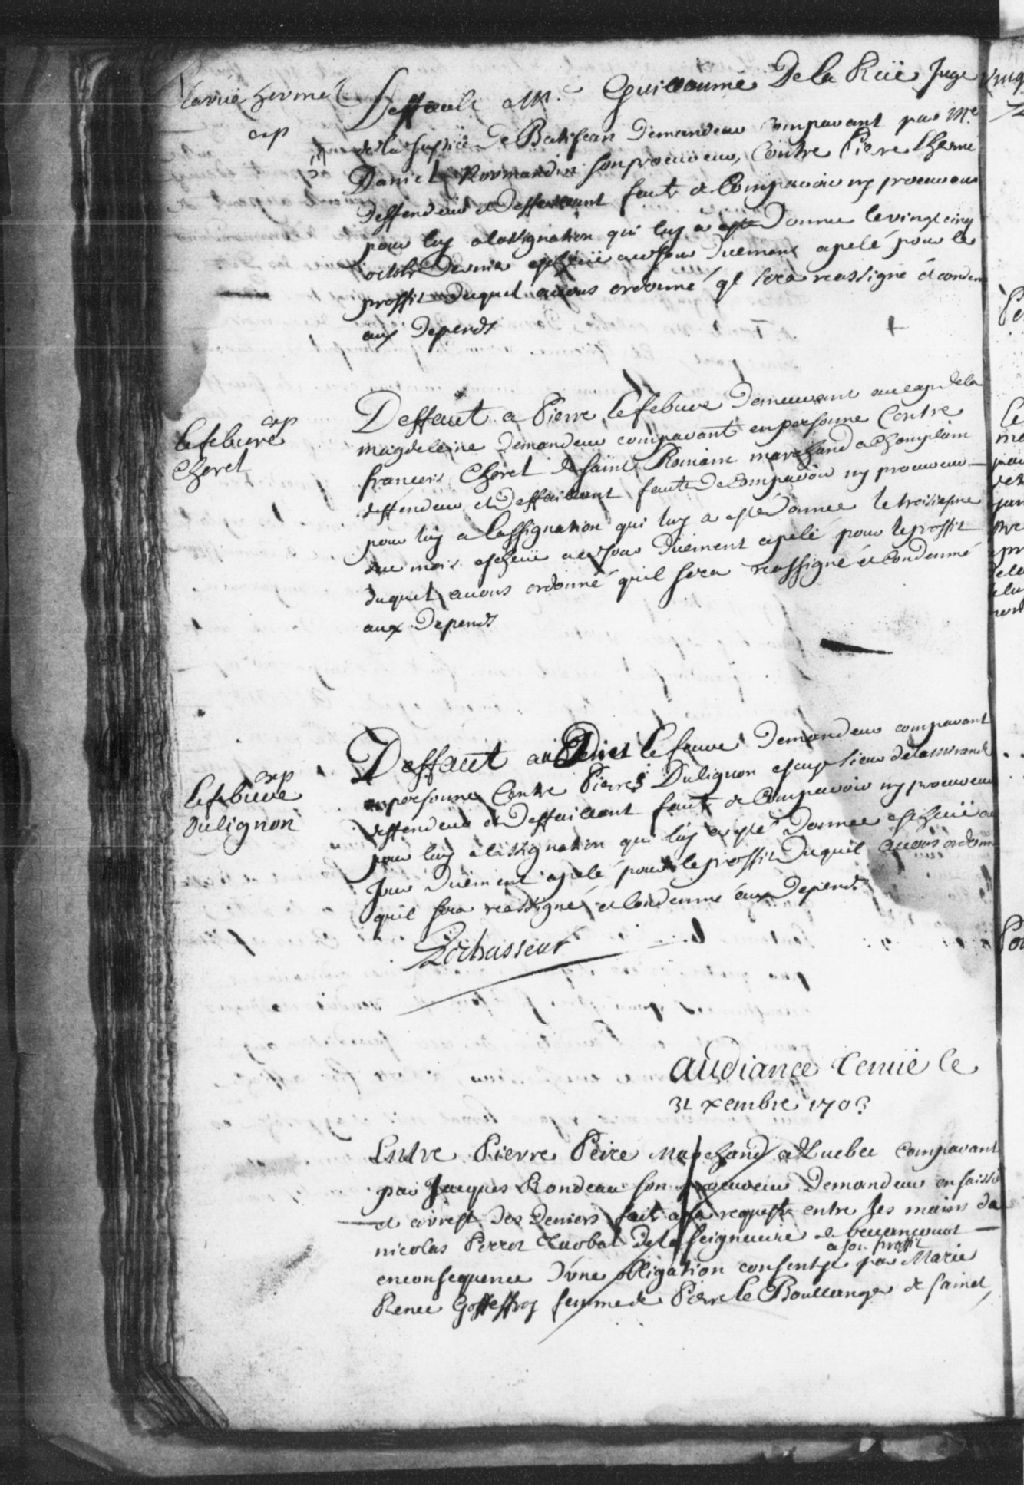 Larue hermel
exp
Deffault a Mr. Guillaume De la Rüe Juge
de la Justice de Batiscan demandeur comparant par Mre
Daniel Normandin son procureur, Contre Pierre Lherme
deffendeur et deffaillant faute de Comparoir ny procureur
pour luy a lassignation qui luy a esté Donnée le vingt cinq
octobre dernier escheüe au Jour düement apelé pour le
proffit duquel avons ordonné ql sera reassigné et conden
aux depends
exp
lefebure
Choret
Deffaut a Pierre lefebure demeurant au cap de la
magdeleine demandeur comparant en personne Contre
francois Choret de Saint Romain marchand a Champlain
deffendeur et deffaillant faute de comparoir ny procureur
pour luy a lassignation qui luy a esté donnée le troisiesme
du mois escheüe au Jour düement apelé pour le proffit
duquel avons ordonné quil sera reassigné et Condamné
aux depends
exp
lefebure
dulignon
Deffaut a lefeuvre demandeur comparant
en personne Contre Pierre Dulignon escuyer sieur de lamirande
deffendeur et deffaillant faute de Comparoir ny procureur
pour luy a lassignation qui luy a esté donnée escheüe au
Jour düement apelé pour le proffit duquel avons ordonné
quil sera reassigné et Condamné aux depends
Lechasseur
Audiance Tenüe le
31 xembre 1703
Entre Pierre Peire Marchand a Quebec comparant
par Jacques Rondeau son procureur demandeur en saisie
et arrest des deniers fait a sa requeste entre les mains de
nicolas Perrot de la seigneurie de becancourt
a son proffit
en consequence d'une obligation consentye par Marie
Renee Goffeffroy femme de Pierre le Boullanger de Sainct